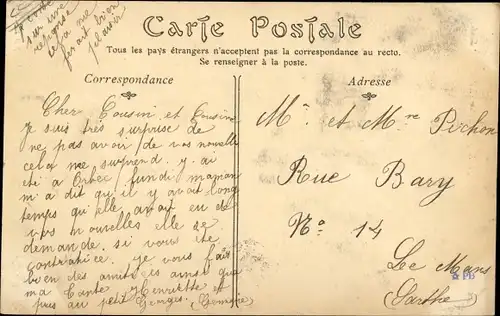 sur une
réponse
ça me
frait bien
plaisir
Carte Postale
Tous les pays étrangers n'acceptent pas la correspondance au recto.
Se renseigner à la poste.
Correspondance
Adresse
Cher Cousin et Cousine
Je suis très surprise de
ne pas avoir de vos nouvelle
cela me surprend. y. ai
été à Orbec lundi maman
m. a dit qu il y avait long
temps qu'elle avait eu de
vos nouvelles elle se
demande si vous ete
contrariée. je vous fait
bien des amitiées ainsi que
ma tante Henriette et
puis au petit Georges.
Mr et Mme Pichon
Rue Bary
No 14
Le Mans
(Sarthe)
PB